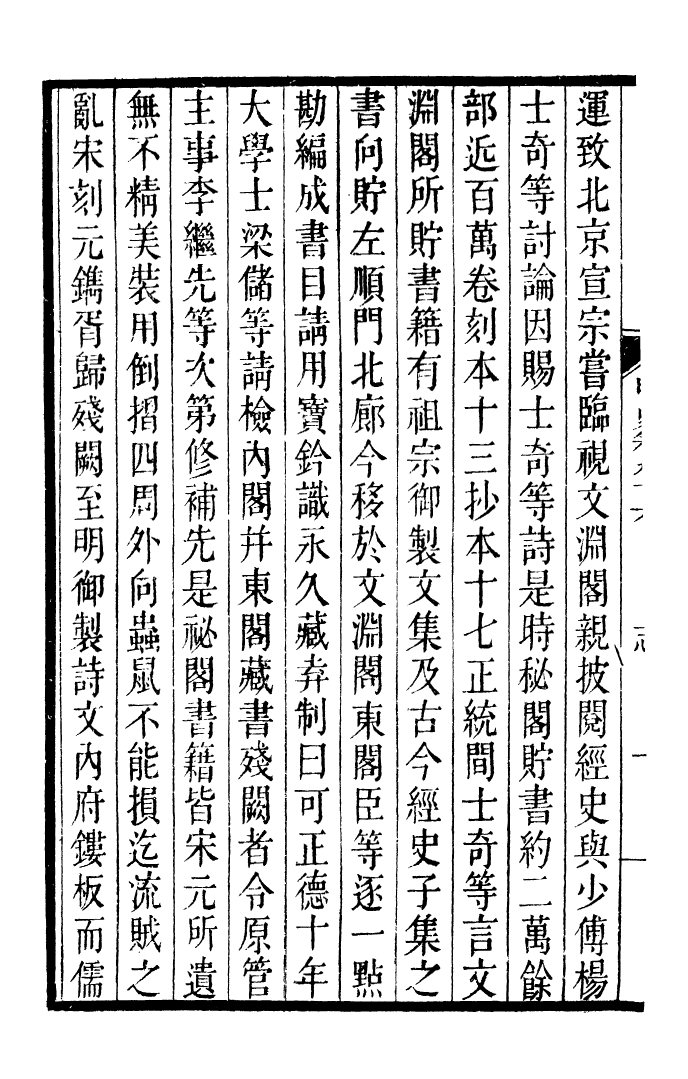 運致北京宣宗嘗臨視文淵閣親披閱經史與少傅楊
士奇等討論因賜士奇等詩是時秘閣貯書約二萬餘
部近百萬卷刻本十三抄本十七正統間士奇等言文
淵閣所貯書籍有祖宗御製文集及古今經史子集之
書向貯左順門北廊今移於文淵閣東閣臣等逐一點
勘編成書目請用寶鈐識永久藏弆制曰可正德十年
大學士梁儲等請檢內閣幷東閣藏書殘闕者令原管
主事李繼先等次第修補先是祕閣書籍皆宋元所遺
無不精美裝用倒摺四周外向蟲鼠不能損迄流賊之
亂宋刻元鐫胥歸殘闕至明御製詩文內府鏤板而儒